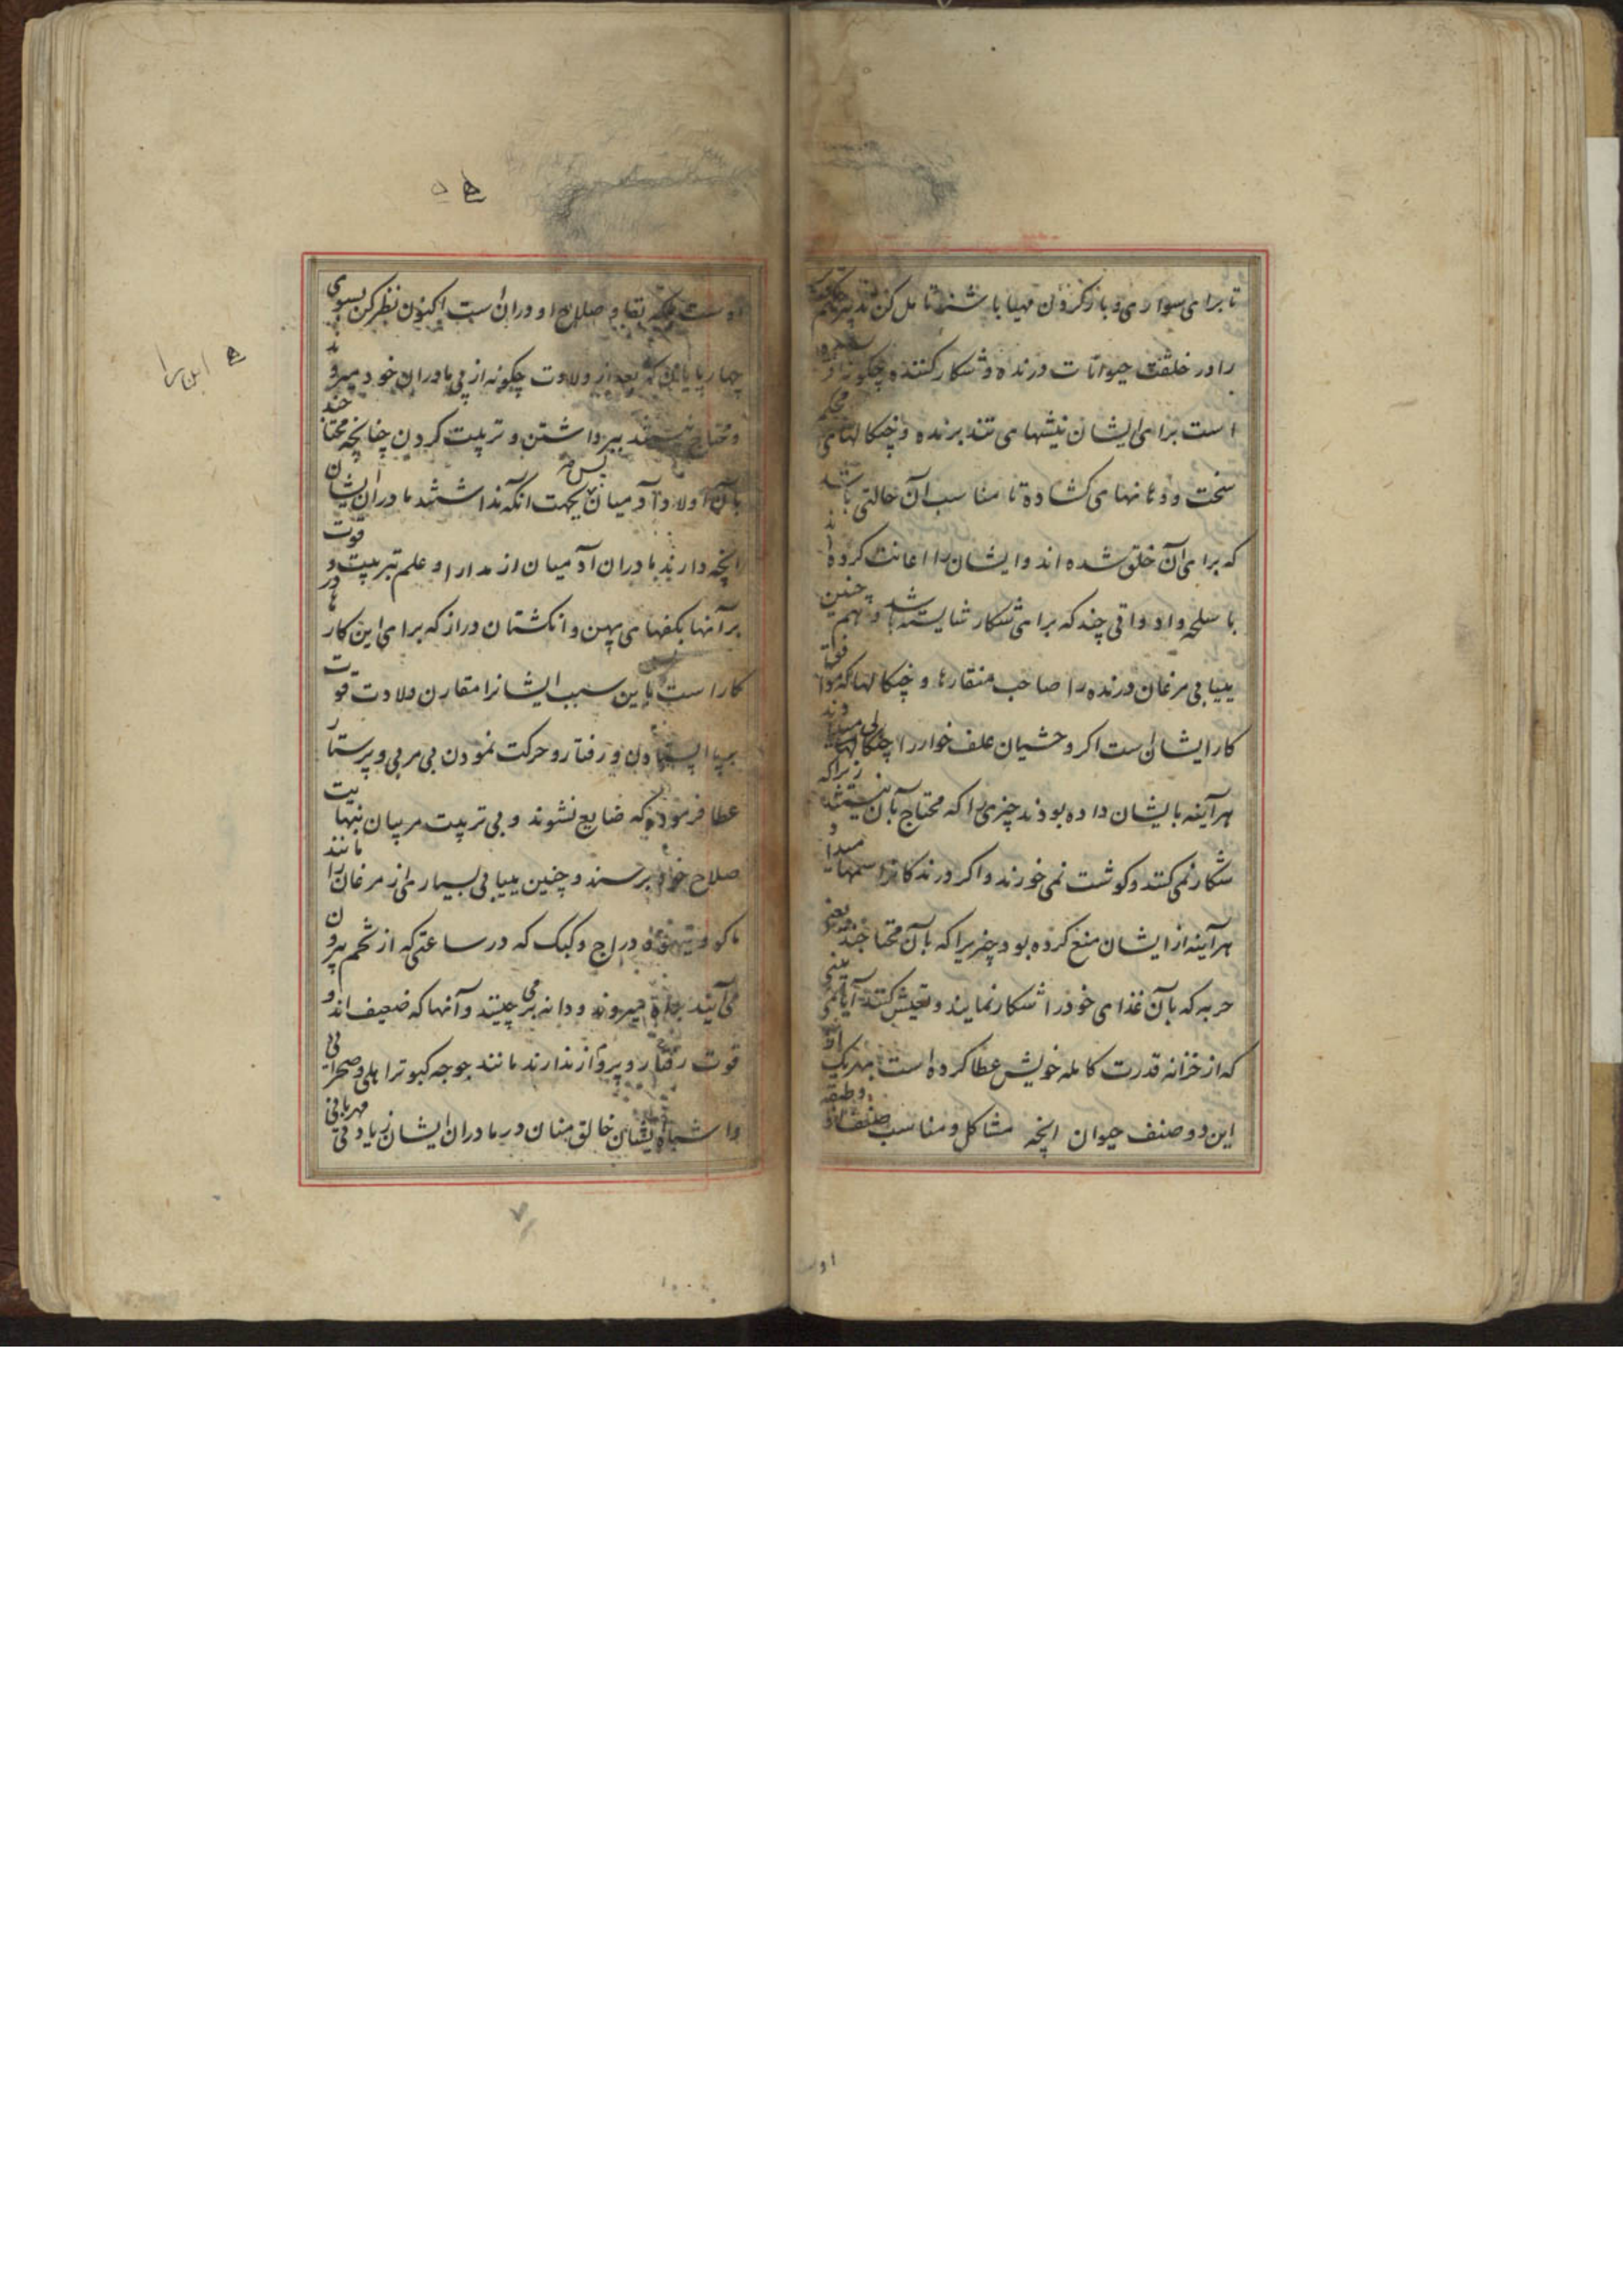 تا برای سواری و بار کردن مهیا باشند تامل کن تدبیر حکیم
را در خلقت حیوانات درنده و شکار کننده چگونه
است برای ایشان نیشهای تند برنده و چنکالهای محکم
سخت و دهانهای کشاده تا مناسب آن حالتی باشد
که برای آن خلق شده اند و ایشان را اعانت کرده اند
با سلحه و ادواتی چند که برای شکار شایسته باشد و همچنین
بیابی مرغان درنده را صاحب منقارها و چنکالها که موافق
کار ایشان است اکر وحشیان علف خوار را چنکالها میدادند
هرآینه بایشان داده بودند چیزی را که محتاج بآن نیستند زیرا که
شکار نمی کنند و کوشت نمی خورند و اکر درندکانرا سمها میداد
هرآینه از ایشان منع کرده بود چیزیرا که بآن محتاجند یعنی
حربه که بآن غذای خود را شکار نمایند و تعیش کنند آیا نمی بینی
که از خزانه قدرت کامله خویش عطا کرده است بهریک از
این دو صنف حیوان انچه مشاکل و مناسب صنف و طبقه
اوست
اوست بلکه بقا و صلاح او در آن است اکنون نظر کن بسوی
چهارپایان که بعد از ولادت چگونه از پی مادران خود میروند
و محتاج نیستند ببرداشتن و تربیت کردن چنانچه محتاجند
بآن اولاد آدمیان پس بجهت انکه نداشتند مادران ایشان
انچه دارند مادران آدمیان از مدارا و علم تربیت و قوت
بر آنها بکفهای پهن و انکشتان دراز که برای این کار در
کار است باین سبب ایشانرا مقارن ولادت قوت
برپا ایستادن و رفتار و حرکت نمودن بی مربی و پرستار
عطا فرموده که ضایع نشوند و بی تربیت مربیان بنهایت
صلاح خود برسند و چنین بیابی بسیاری از مرغان را مانند
ماکو و تیهو و دراج و کبک که در ساعتی که از تخم بیرون
می آیند براه میروند و دانه بر می چینند و آنها که ضعیف اند و
قوت رفتار و پرواز ندارند مانند جوجه کبوتر اهلی و صحرائی
و اشباه ایشان خالق منان در مادران ایشان زیادتی مهربانی